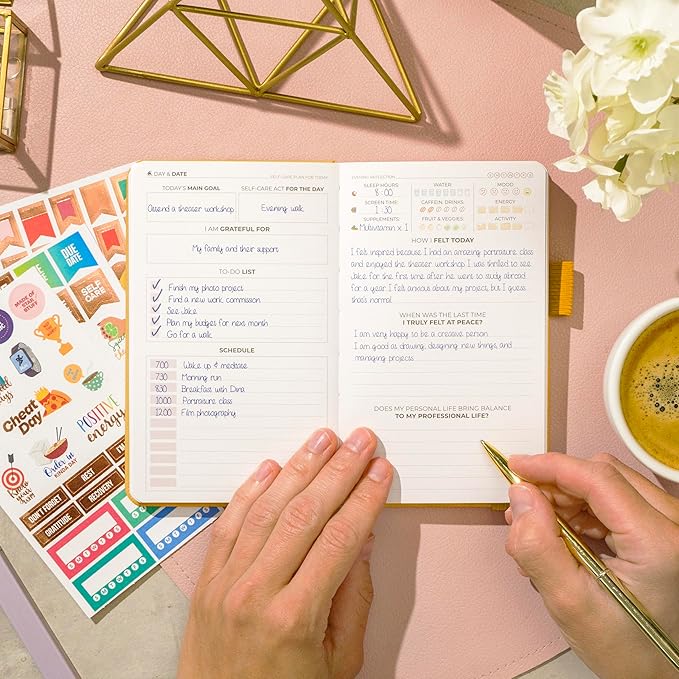 DAY & DATE
SELF-CARE PLAN FOR TODAY
TODAY'S MAIN GOAL
SELF-CARE ACT FOR THE DAY
Attend a theater workshop
Evening walk
I AM GRATEFUL FOR
My family and their support
TO-DO LIST
Finish my photo project
Find a new work commission
See Jake
Plan my budges for next month
Go for a walk
SCHEDULE
7:00 Wake up & medicase
7:30 Morning run
8:30 Breakfast with Dina
10:00 Portraiture class
12:00 Film photography
EVENING REFLECTION
SLEEP HOURS
8 : 00
SCREEN TIME
1 : 30
SUPPLEMENTS
Multivitamin x 1
WATER
CAFFEIN. DRINKS
FRUIT & VEGGIES
MOOD
ENERGY
ACTIVITY
HOW I FELT TODAY
I felt inspired because I had an amazing portraiture class
and enjoyed the theater workshop. I was thrilled to see
Jake for the first time after he went to study abroad
for a year. I felt anxious about my project, but I guess
that's normal.
WHEN WAS THE LAST TIME
I TRULY FELT AT PEACE?
I am very happy to be a creative person.
I am good as drawing, designing new things, and
managing projects
DOES MY PERSONAL LIFE BRING BALANCE
TO MY PROFESSIONAL LIFE?
DUE DATE
SELF CARE
MADE OF
STAR
STUFF
Cheat
Day
POSITIVE
energy
Order in
KINDA DAY
Know
your
DON'T FORGET
REST
RECOVERY
GRATITUDE
S M T W T F S
S M T W T F S
S M T W T F S